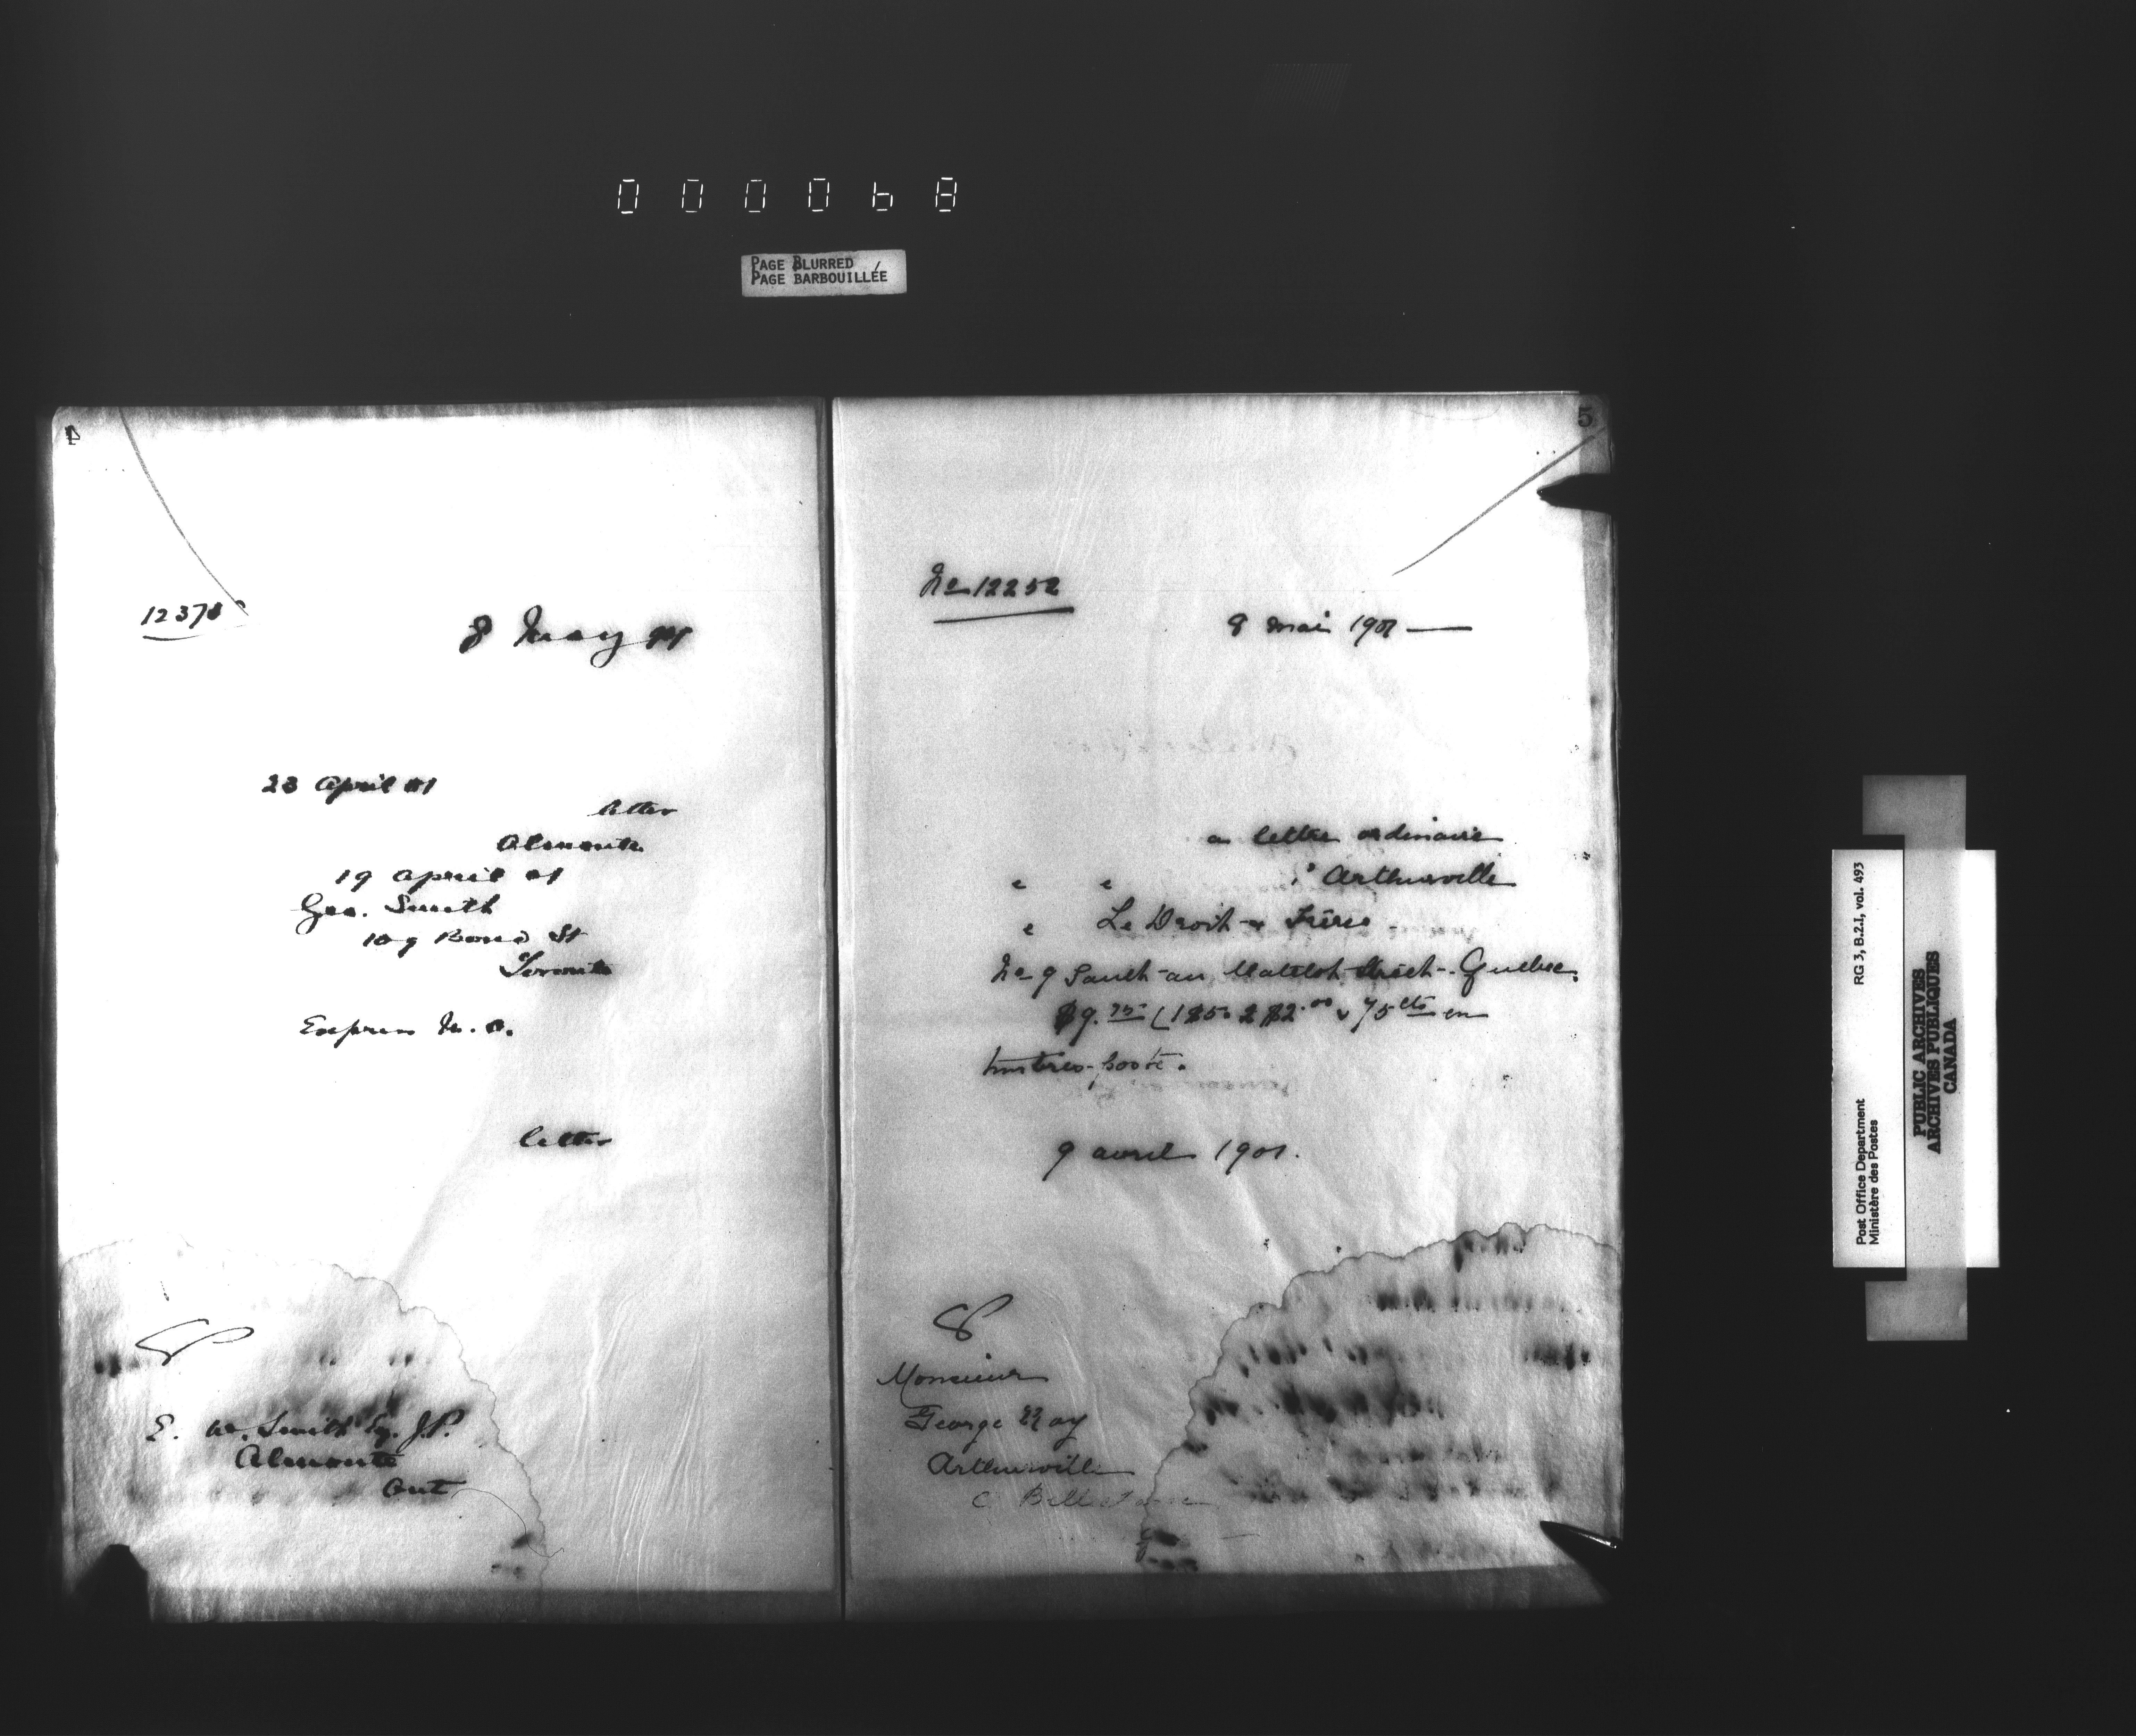 PAGE BLURRED
PAGE BARBOUILLÉE
4
8 May 01
23 April 01
letter
Almonte
19 April 01
Geo. Smith
109 Bond St
Toronto
Express M. O.
letter
E. W. Smith Esq. J.P.
Almonte
Ont
5
No 12252
8 mai 1901
a lettre ordinaire
à Arthurville
e Le Droit & Frère
No 9 Sault-au-Matelot Street - Quebec.
$9.75 (1 $5 2 $2.00 & 75 cts en
timbres-poste.
9 avril 1901.
Monsieur
George Roy
Arthurville
C Bellechasse
RG 3, B.2.I, vol. 493
Post Office Department
Ministère des Postes
PUBLIC ARCHIVES
ARCHIVES PUBLIQUES
CANADA